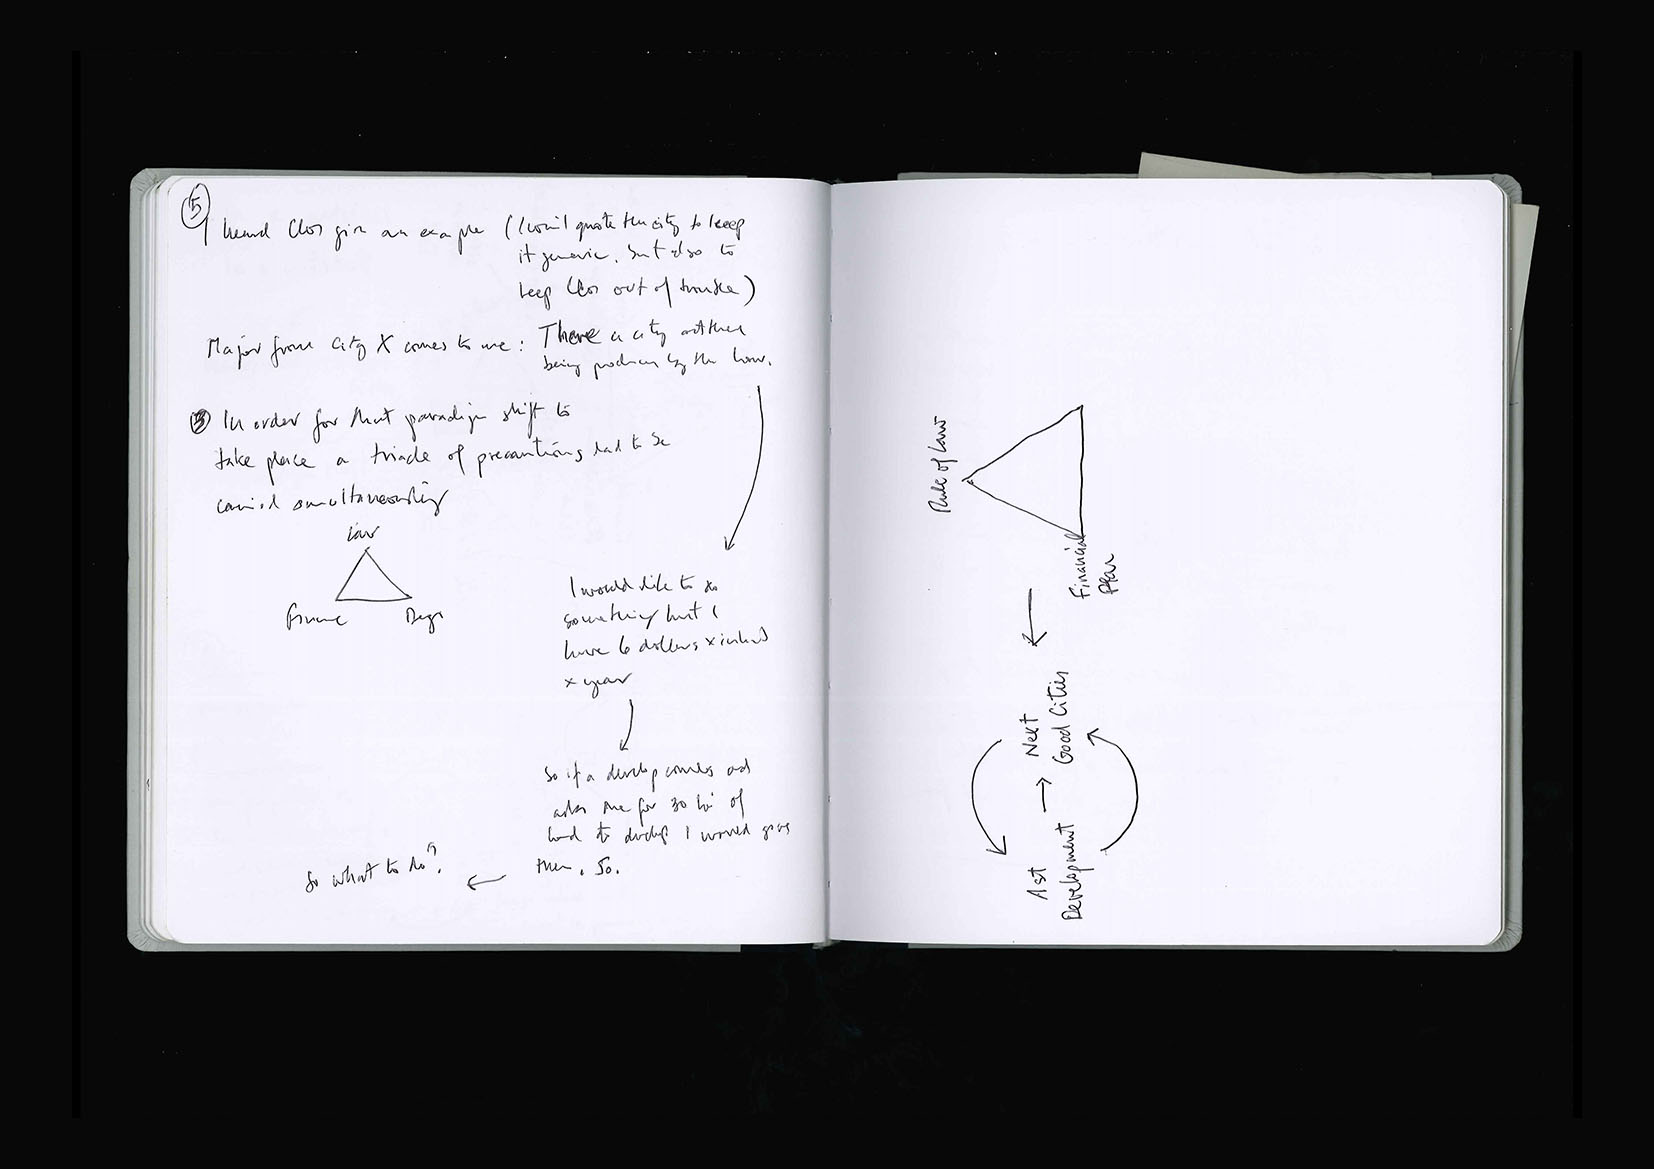 5
I heard Clos give an example (I won't quote the city to keep
it generic, but also to
keep Clos out of trouble)
Major from city X comes to me: There a city out there
being produced by the hour.
3 In order for that paradigm shift to
take place a triade of precautions had to be
carried simultaneously
Law
Finance Design
I would like to do
something but I
have 6 dollars x
x year
So if a develop comes and
asks me for 30 of
land to develop I would give
them. So.
So what to do?
Rule of Law
Financial
Plan
Next
Good Cities
1st
Development